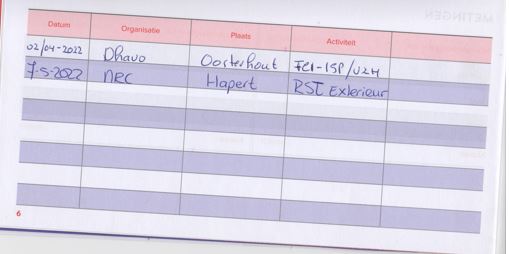 METINGEN
Datum Organisatie Plaats Activiteit
02/04-2022 Dhavo Oosterhout FCI-ISP/UZH
7-5-2022 NRC Hapert RSI Exterieur
6